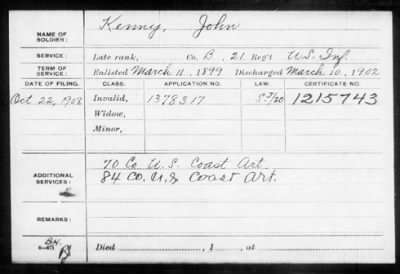 NAME OF SOLDIER: Kenny, John
SERVICE: Late rank, Co. B, 21 Reg't U.S. Inf.
TERM OF SERVICE: Enlisted March 11, 1899 Discharged March 10, 1902
DATE OF FILING. CLASS. APPLICATION NO. LAW. CERTIFICATE NO.
Oct 22, 1908 Invalid, 1378317 1215743
Widow,
Minor,
ADDITIONAL SERVICES: 70 Co U.S. Coast Art.
84 Co. U.S. Coast Art.
REMARKS:
Died , 1 , at